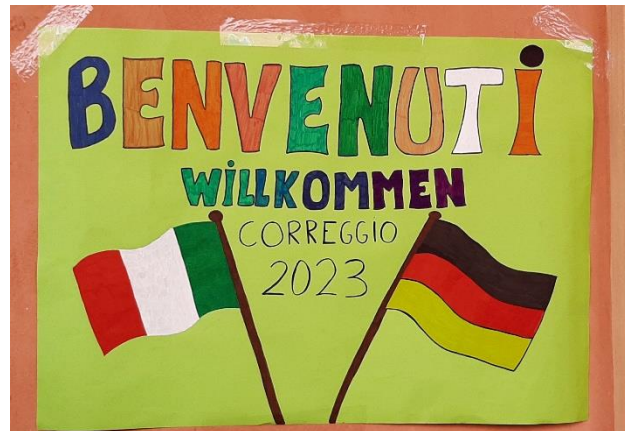 BENVENUTI
WiLLKOMMEN
CORREGGIO
2023